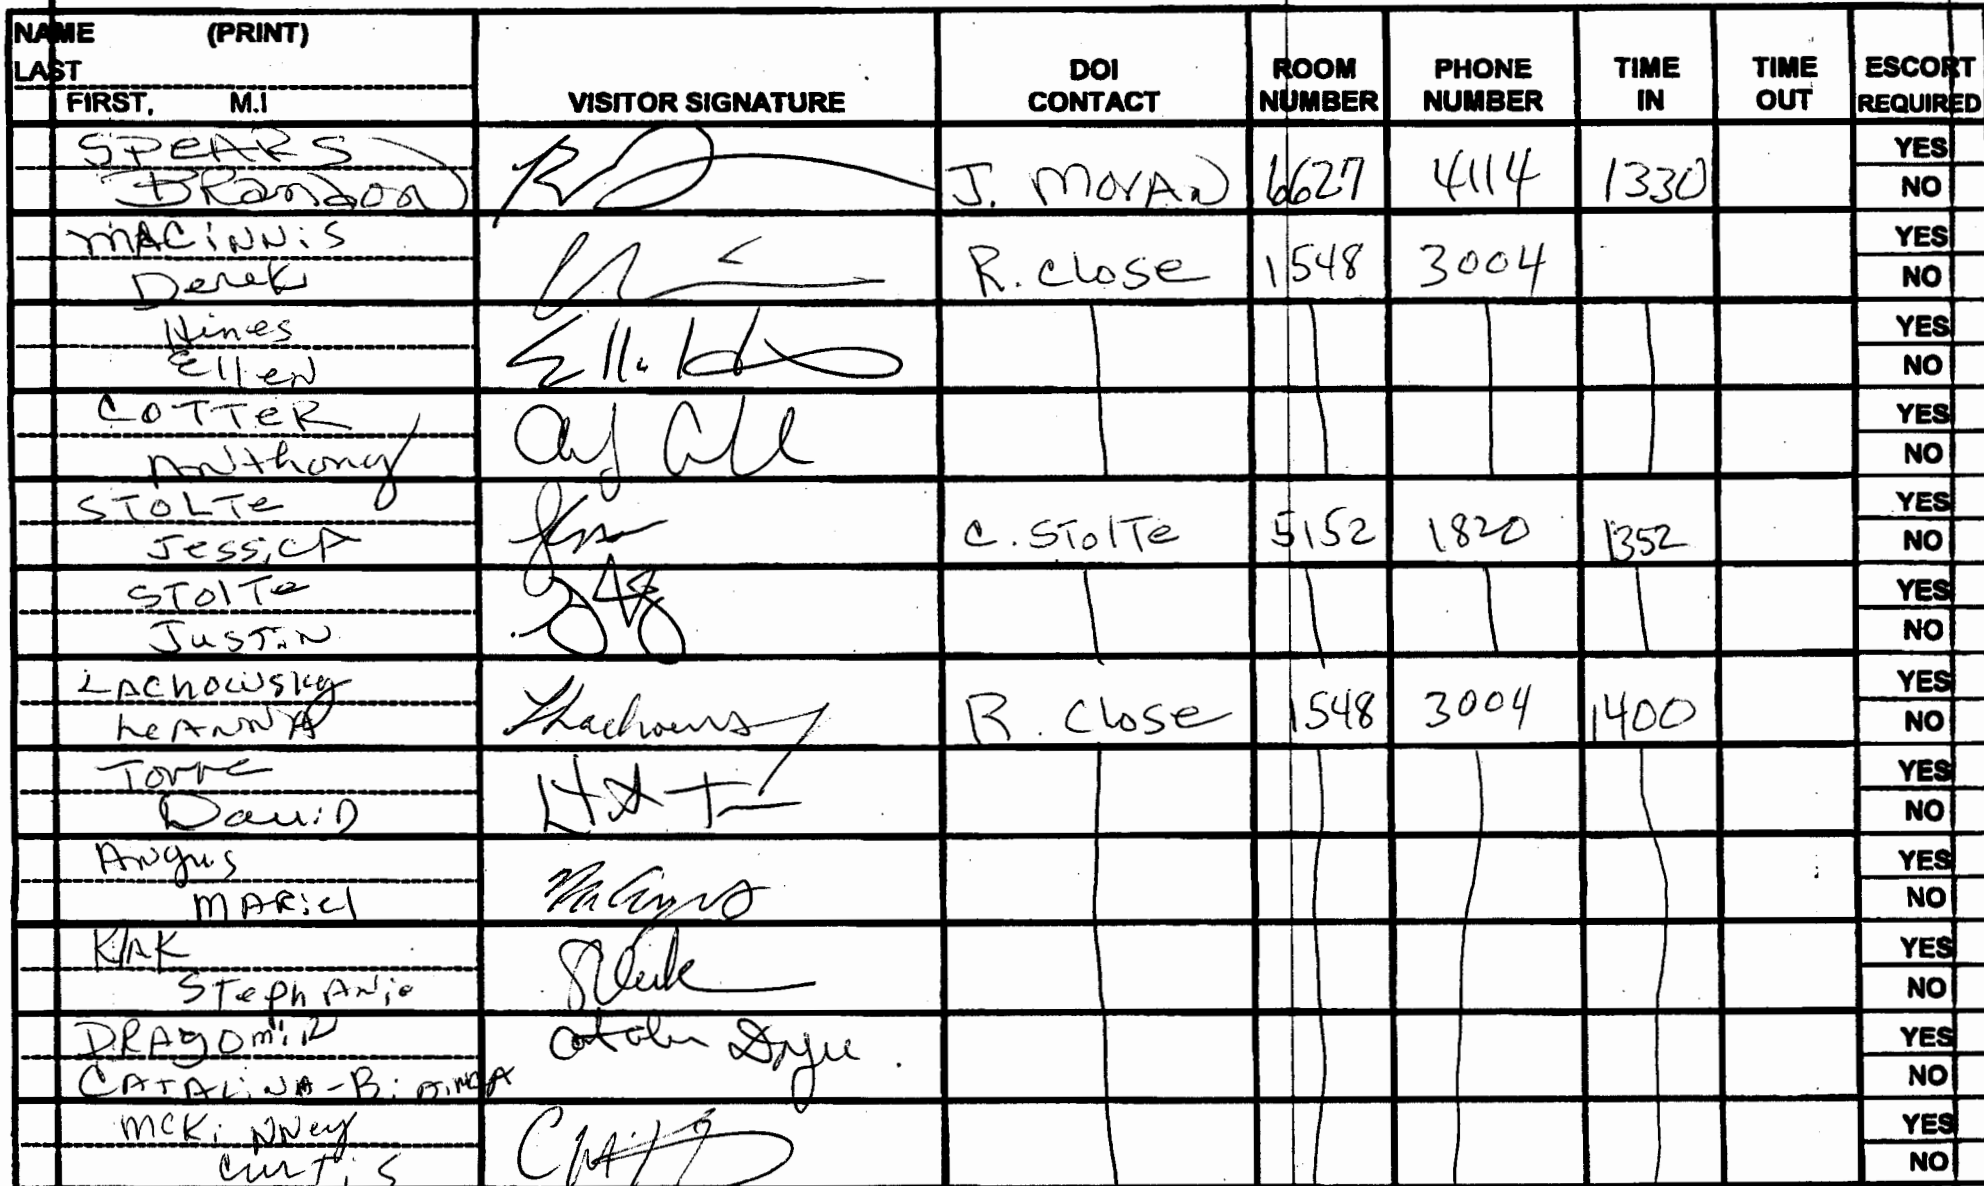 NAME (PRINT)
LAST
FIRST, M.I
VISITOR SIGNATURE
DOI CONTACT
ROOM NUMBER
PHONE NUMBER
TIME IN
TIME OUT
ESCORT REQUIRED
SPEARS
BRandon
J. MORAN 6627 4114 1330
YES
NO
MACiNNiS
Derek
R. Close 1548 3004
YES
NO
Hines
Ellen
YES
NO
COTTeR
ANthony
YES
NO
STOLTe
JessicA
C. STolTe 5152 1820 1352
YES
NO
STolTe
JusTiN
YES
NO
LAchowsky
LeANNA
R. Close 1548 3004 1400
YES
NO
Torre
DaviD
YES
NO
Angus
MARiel
YES
NO
KlAK
StephANie
YES
NO
DRAgomiR
CATALiNA-BiANCA
YES
NO
McKiNNey
CurTiS
YES
NO